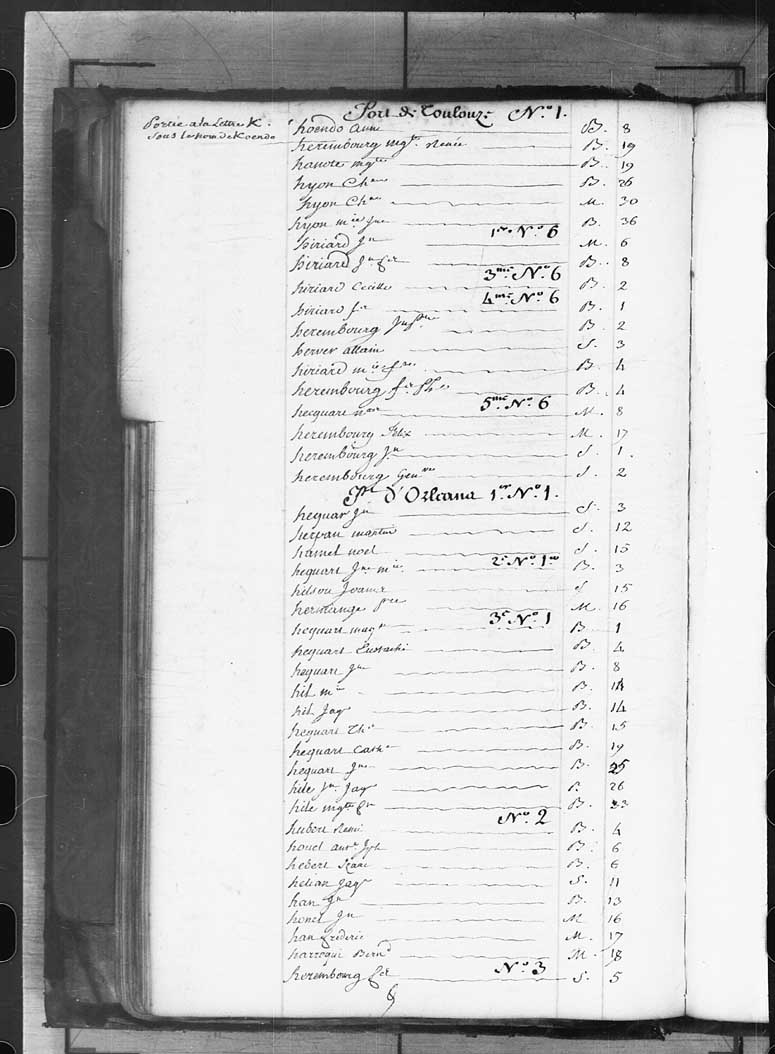 Port de Toulouze N.o 1.
Portée a la Lettre K.
Sous le nom de Koendo
hoendo Anne B. 8
herembourg mg.te Renée B. 19
hanote mg.te B. 19
hyon Ch. B. 26
hyon Ch. M. 30
hyon m.ie B. 36
1.er N.o 6
hiriard J.n M. 6
hiriard J.n B. 8
3.me N.o 6
hiriard Cecille B. 2
4.me N.o 6
hiriard B. 1
herembourg B. 2
herver allain S. 3
hiriard m.ie B. 4
herembourg B. 4
5.me N.o 6
hecquart M. 8
herembourg Felix M. 17
herembourg J.n S. 1.
herembourg Gen.ve S. 2
d'Orleans 1.er N.o 1.
hequar J.n S. 3
hervan martin S. 12
hamel noel S. 15
2.e N.o 1.er
hequart J.ne m.ie B. 3
hilson S 15
hermange M. 16
3.e N.o 1
hequart B. 1
hequart Eustache B. 4
hequart J.ne B. 8
hil m.ie B. 14
hil Jaq B. 14
hequart B. 15
hequart Cath.e B. 19
hequart J.ne B. 25
hile J.n Jaq 26
hile mg.te B. 23
N.o 2
hubert René B. 4
honel B. 6
hebert B. 6
helian Jaq S. 11
han J.n B. 13
honel J.n M 16
han frederic M. 17
harregui Bern.d M. 18
N.o 3
herembourg S. 5